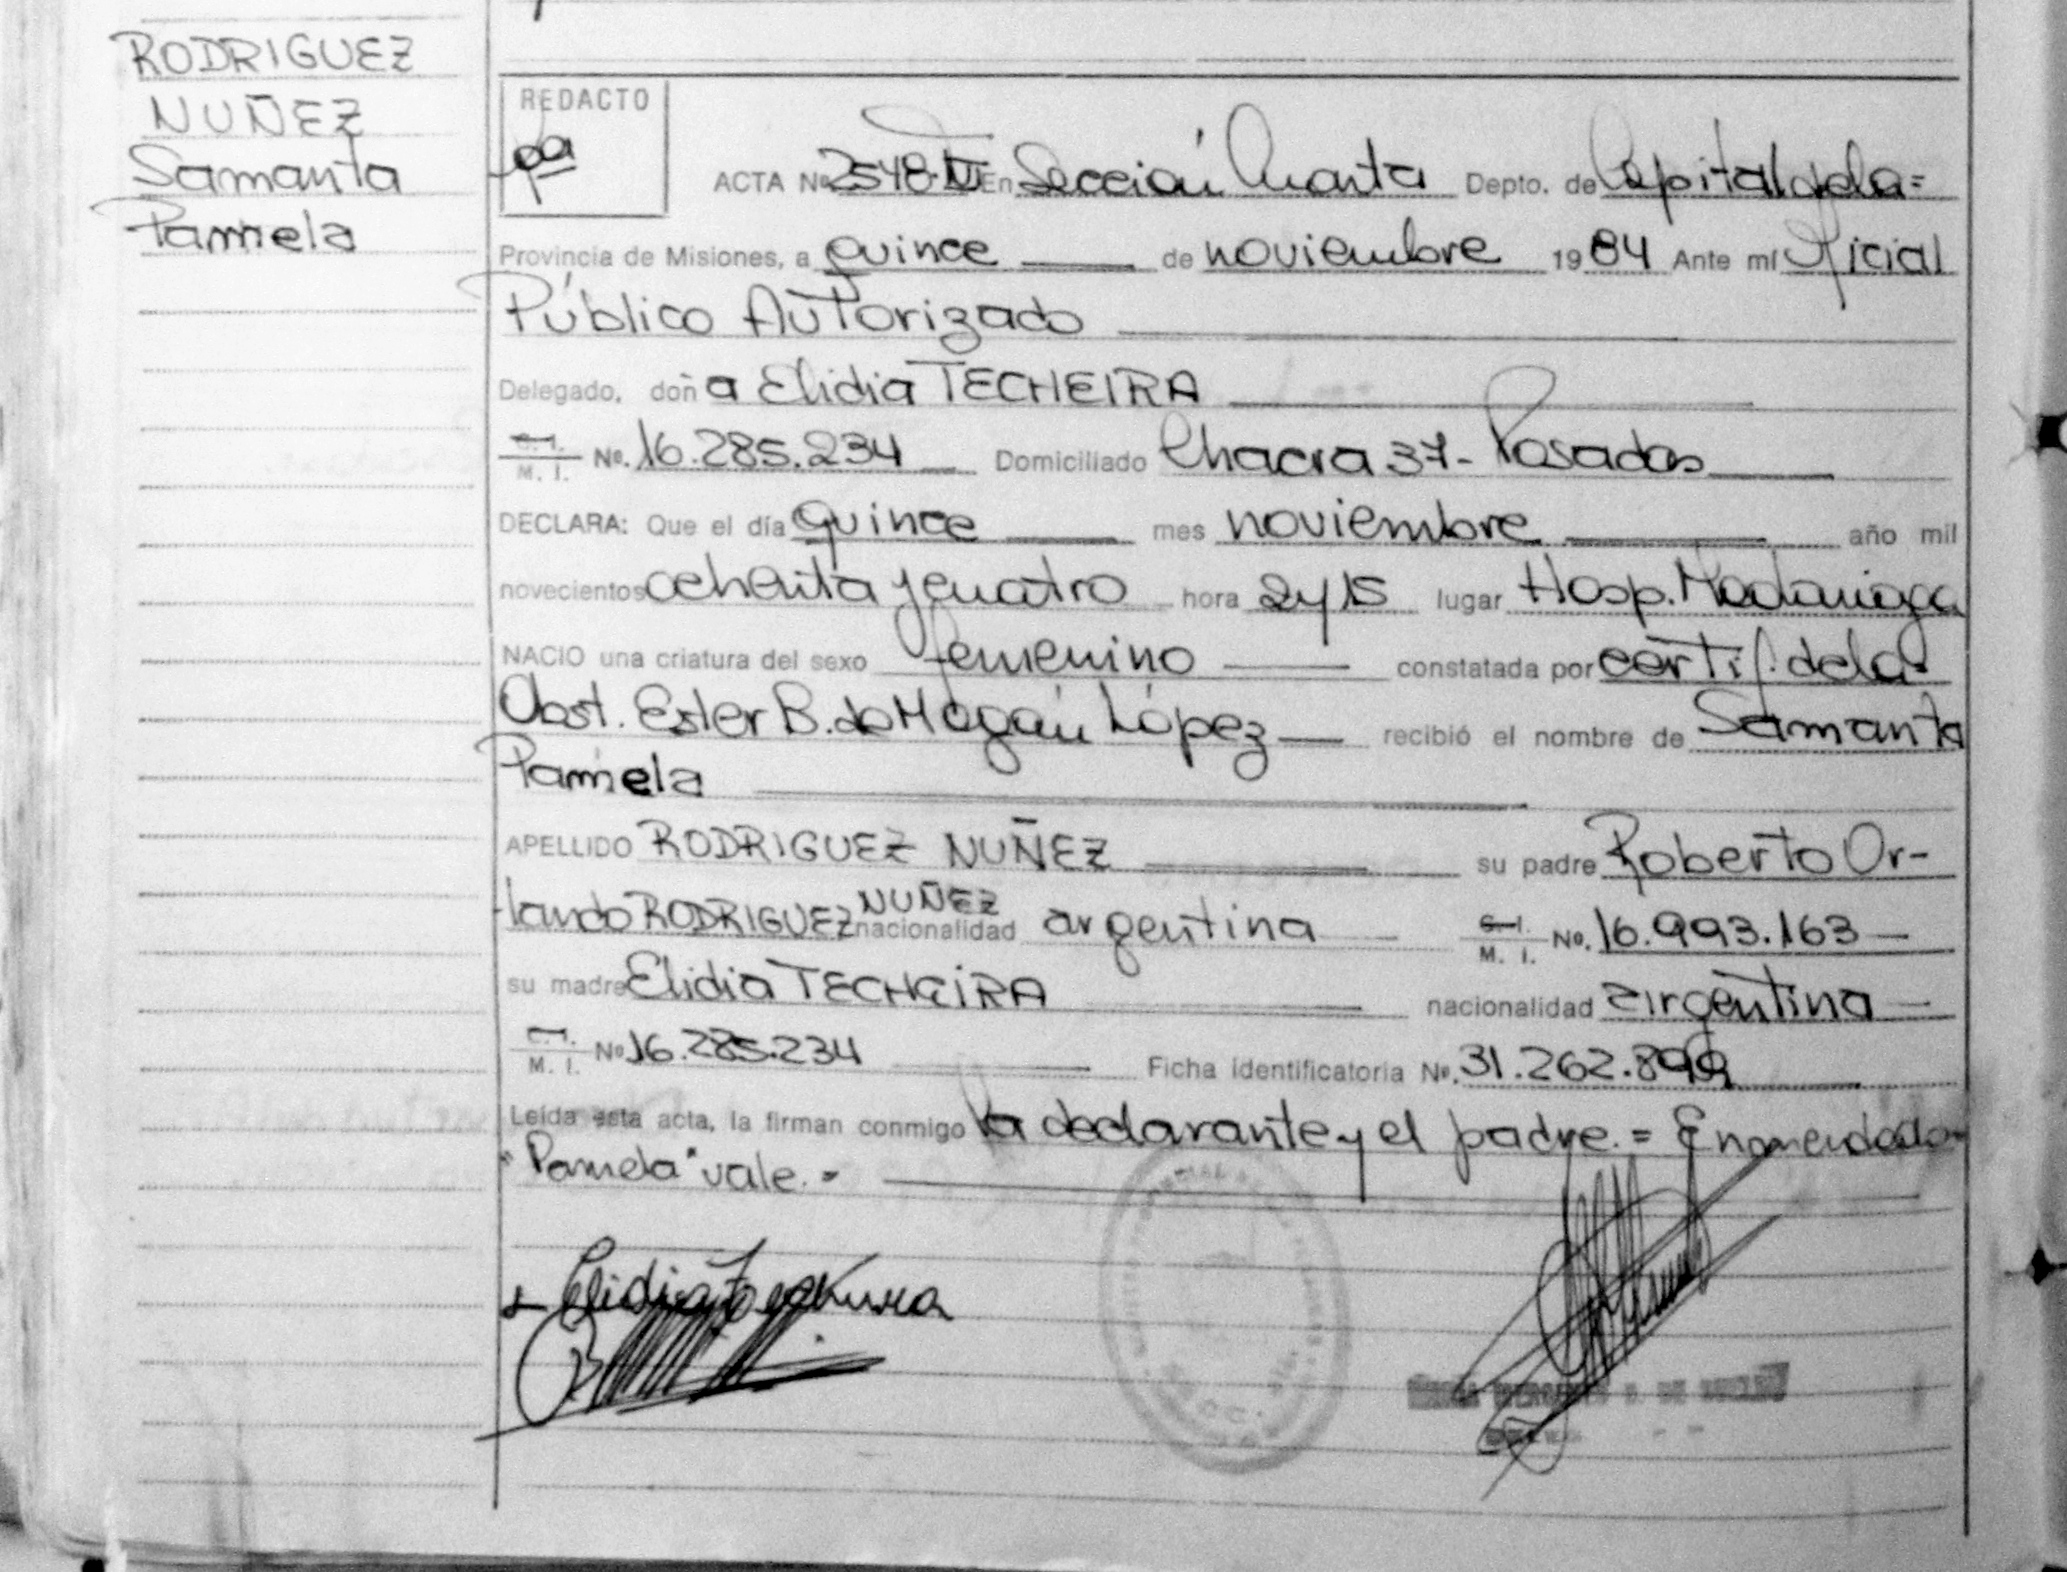 RODRIGUEZ
NUÑEZ
Samanta
Pamela
REDACTO
ACTA Nº 2548-IV En Sección Cuarta Depto. de Capital de la=
Provincia de Misiones, a quince de noviembre 1984 Ante mí Oficial
Público Autorizado
Delegado, doña Elidia TECHEIRA
C. I.
M. I. Nº. 16.285.234 Domiciliado Chacra 37- Posadas
DECLARA: Que el día quince mes noviembre año mil
novecientos ochenta y cuatro hora 2 y 15 lugar Hosp. Madariaga
NACIO una criatura del sexo femenino constatada por certif. de la
Obst. Ester B. de López recibió el nombre de Samanta
Pamela
APELLIDO RODRIGUEZ NUÑEZ su padre Roberto Or-
lando RODRIGUEZ NUÑEZ nacionalidad argentina C. I. M. I. Nº. 16.993.163
su madre Elidia TECHEIRA nacionalidad argentina
C. I.
M. I. Nº 16.285.234 Ficha identificatoria Nº. 31.262.899
Leída esta acta, la firman conmigo la declarante y el padre.= Enmendado
"Pamela" vale.=